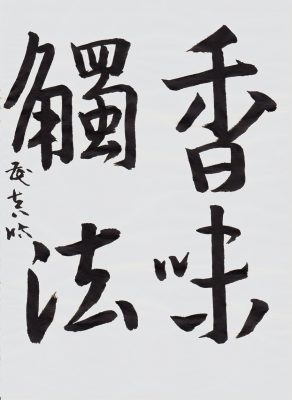 香味
觸法